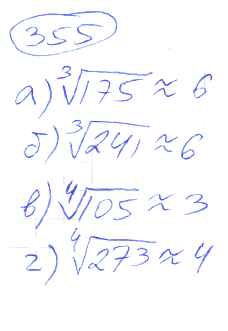 355
а) ∛175 ≈ 6
б) ∛241 ≈ 6
в) ∜105 ≈ 3
г) ∜273 ≈ 4